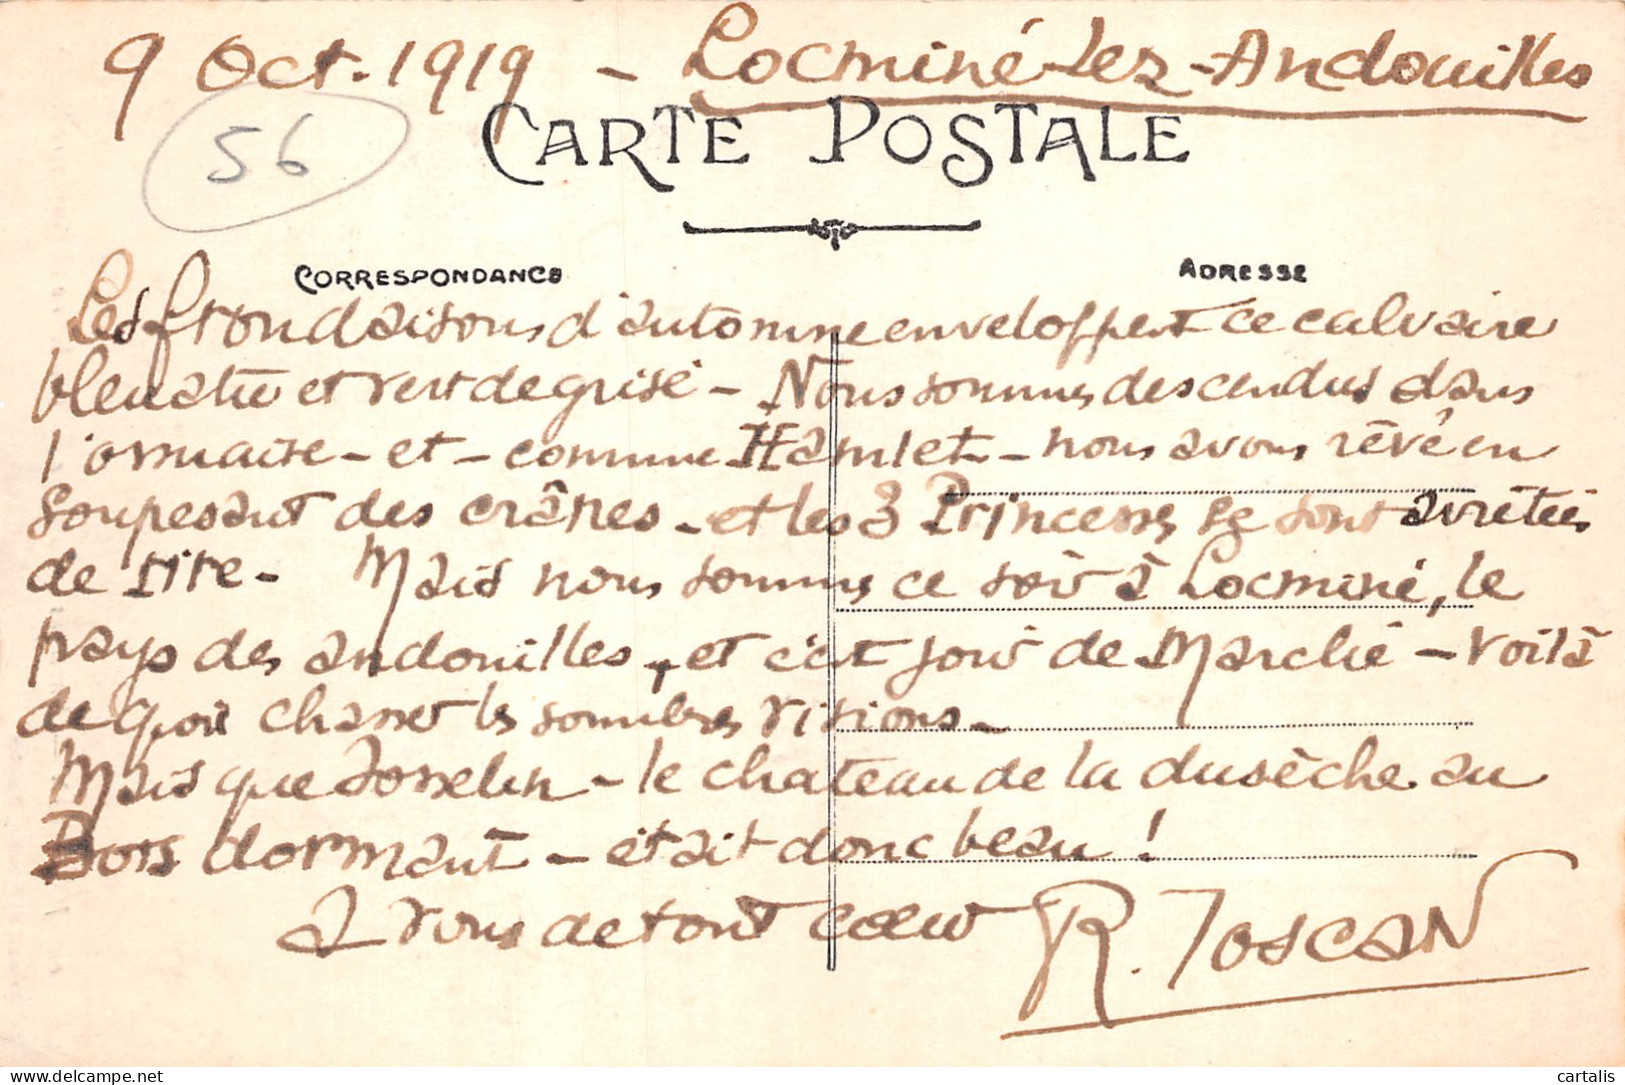 9 Oct. 1919 - Locminé-Lez-Andouilles
56
CARTE POSTALE
CORRESPONDANCE
ADRESSE
Les frondaisons d'automne enveloppent ce calvaire
bleuatre et vert de grisé - Nous sommes descendus dans
l'ossuaire - et - comme Hamlet - nous avons rêvé en
soupesant des crânes - et les 3 Princesses se sont arrêtées
de rire - Mais nous sommes ce soir à Locminé, le
pays des andouilles, et c'est jour de Marché - Voilà
de quoi chasser les sombres visions -
Mais que Josselin - le chateau de la dusèche au
Bois dormant - était donc beau !
A vous de tout cœur R. Toscan
delcampe.net
cartalis